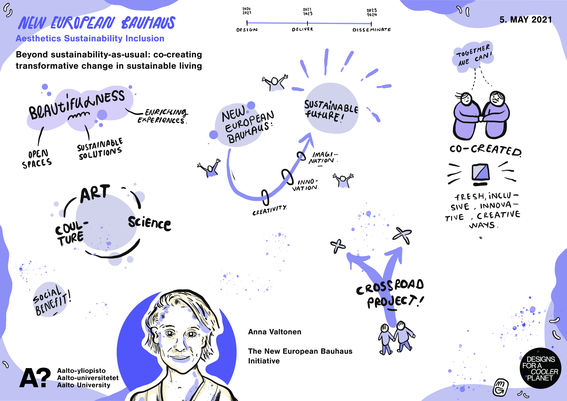 NEW EUROPEAN BAUHAUS
Aesthetics Sustainability Inclusion
Beyond sustainability-as-usual: co-creating
transformative change in sustainable living
2020
2021
2021
2023
2023
2024
DESIGN
DELIVER
DISSEMINATE
5. MAY 2021
BEAUTIFULNESS
ENRICHING
EXPERIENCES.
OPEN
SPACES
SUSTAINABLE
SOLUTIONS
NEW
EUROPEAN
BAUHAUS!
SUSTAINABLE
FUTURE!
IMAGI-
NATION.
INNO-
VATION.
CREATIVITY.
TOGETHER
WE CAN!
CO-CREATED.
FRESH, INCLU-
SIVE, INNOVA-
TIVE, CREATIVE
WAYS.
ART
COUL-
TURE
Science
SOCIAL
BENEFIT!
CROSSROAD
PROJECT!
Anna Valtonen
The New European Bauhaus
Initiative
A?
Aalto-yliopisto
Aalto-universitetet
Aalto University
DESIGNS
FOR A
COOLER
PLANET